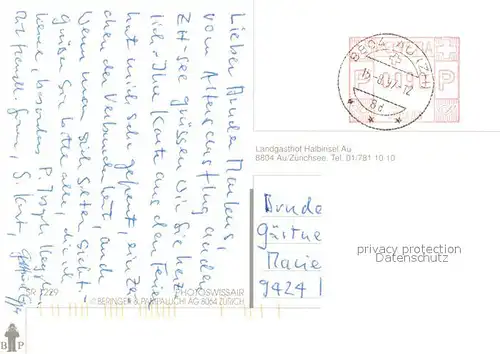 Lieber Bruder Markus,
vom Altersausflug an den
ZH-see grüssen wir Sie herz-
lich. Ihre Karte aus den Ferien
hat mich sehr gefreut, ein Zei-
chen der Verbundenheit, auch
wenn man sich selten sieht.
grüssen Sie bitte alle, die ich
kenne, besonders P. Joseph
Mit freundl. S. Kurt,
8804 AU/ZH
HELVETIA
P 0190 P
Landgasthof Halbinsel Au
8804 Au/Zürichsee. Tel. 01/781 10 10
Bruder
Gärtne
Marie
9424
privacy protection
Datenschutz
SR 1229
PHOTOSWISSAIR
© BERINGER & PAMPALUCHI AG 8064 ZÜRICH
B P